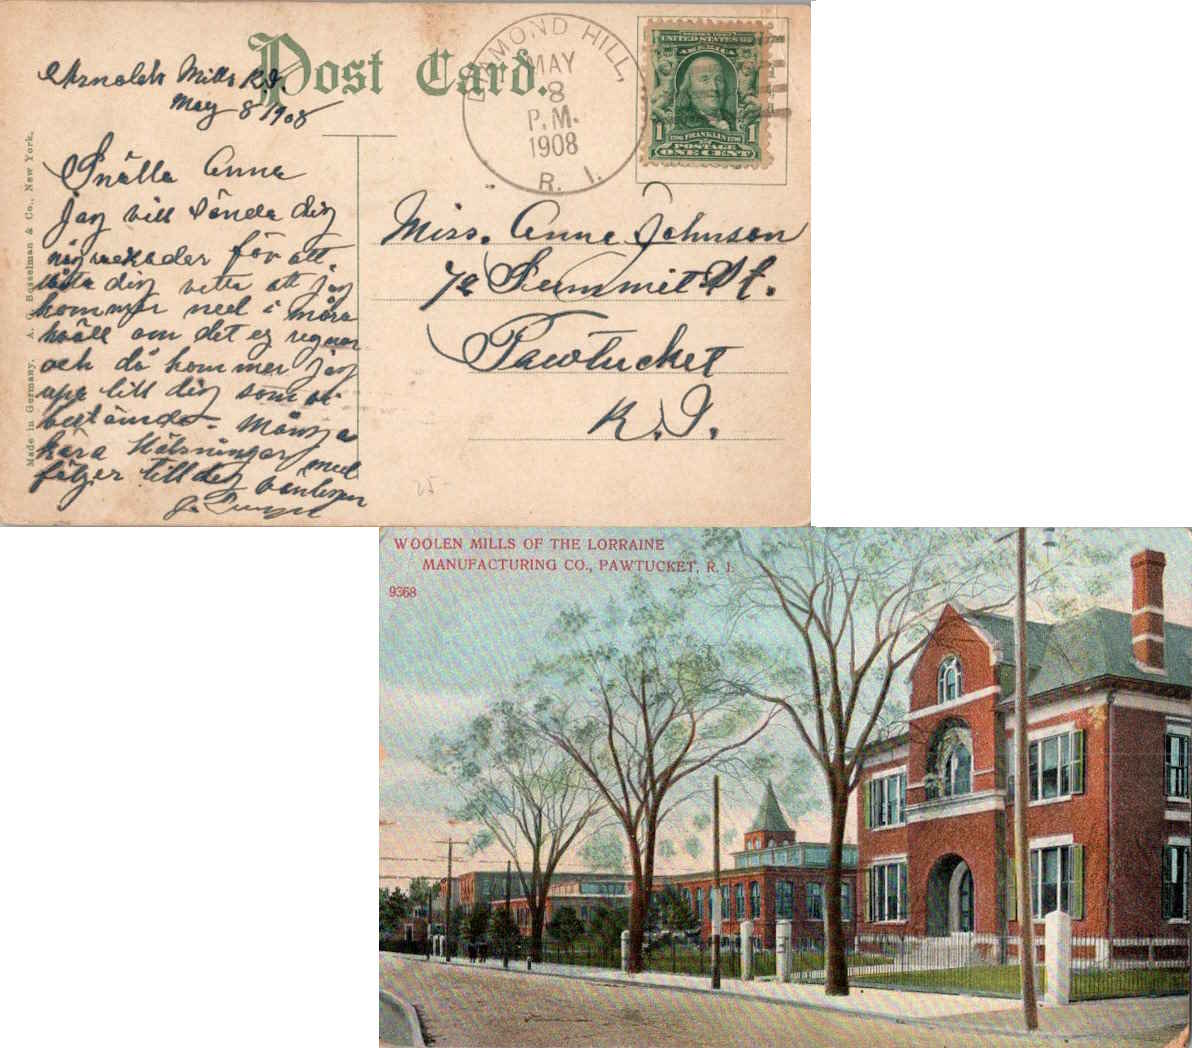 Post Card.
Arnolds Mills R.I.
May 8 1908
DIAMOND HILL,
MAY
8
P.M.
1908
R. I.
SERIES 1902
UNITED STATES OF
AMERICA
1 1706 FRANKLIN 1790 1
POSTAGE
ONE CENT
Made in Germany. A. C. Bosselman & Co., New York.
Snälla Anna
jag vill sända dig
några rader för att
låta dig veta att jag
kommer ned i mårn
kväll om det ej regnar
och då kommer jag
upp till dig som vi
bestämde. Många
kära Hälsningar med
följer till dig vänligen
Miss. Anna Johnson
72 Summit St.
Pawtucket
R.I.
WOOLEN MILLS OF THE LORRAINE
MANUFACTURING CO., PAWTUCKET, R. I.
9368